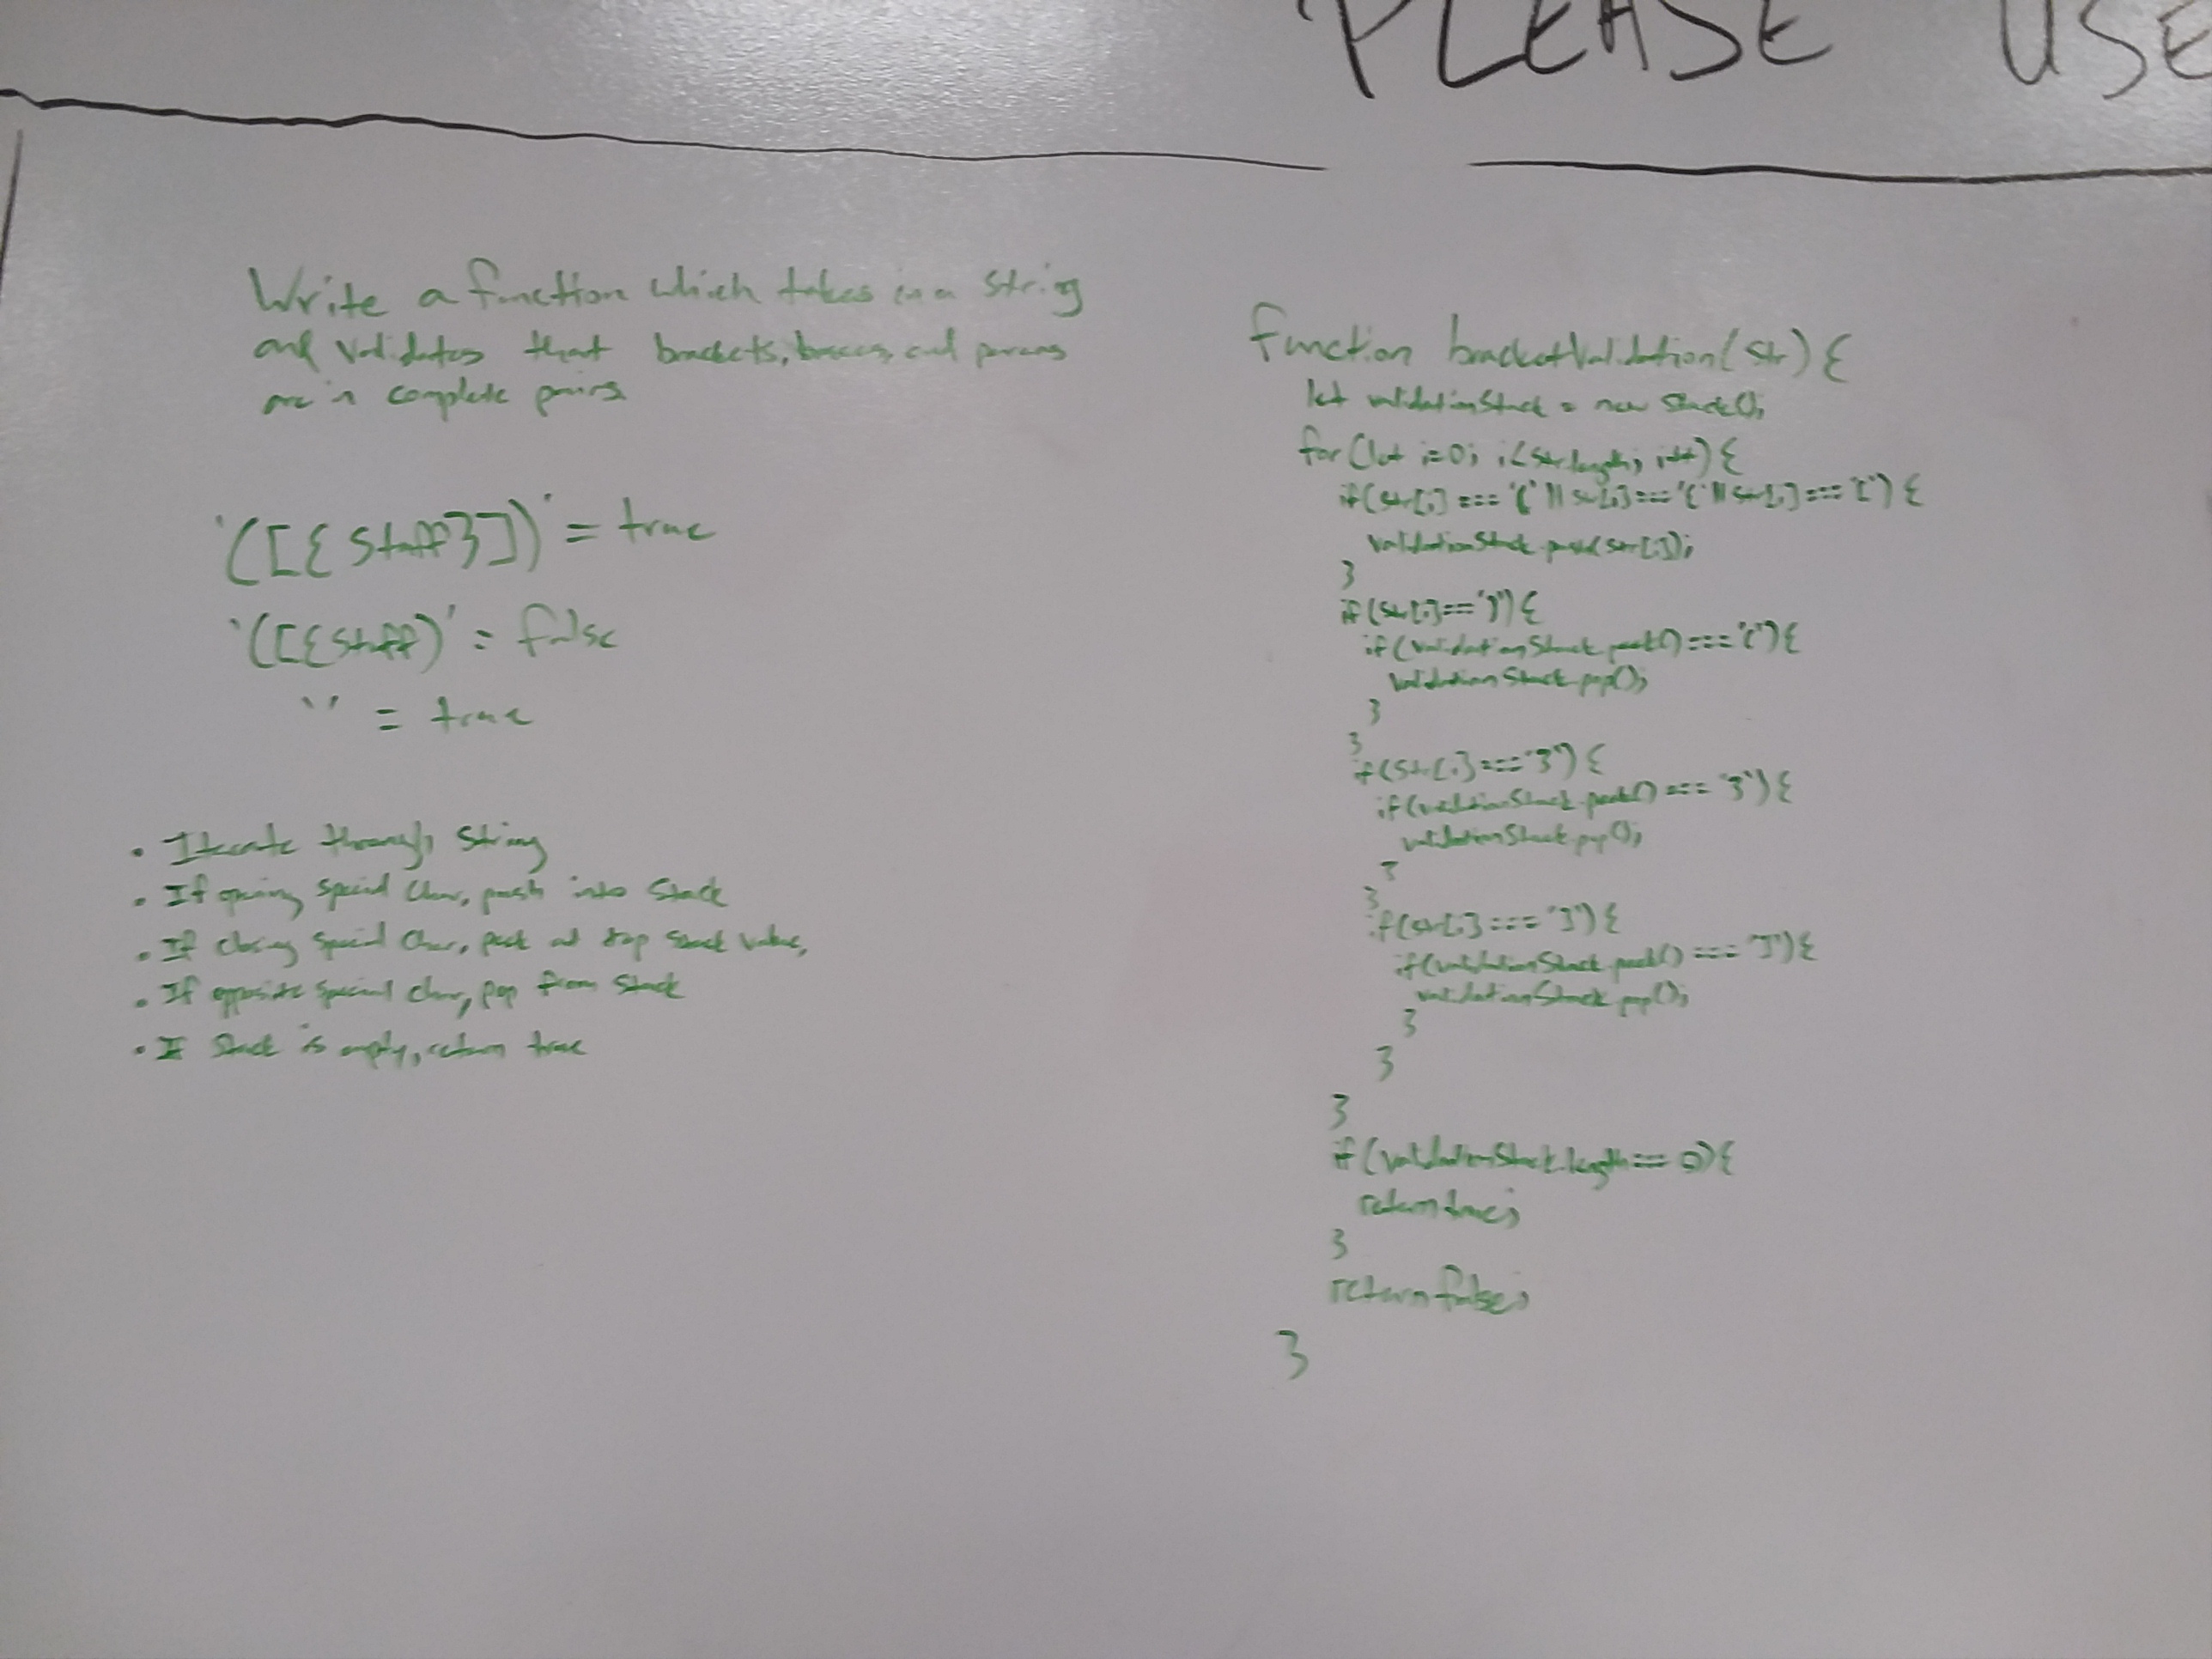 PLEASE USE
Write a function which takes in a string
and validates that brackets, braces, and parens
are in complete pairs
'([{stuff}])' = true
'([{stuff)' = false
'' = true
• Iterate through string
• If opening special char, push into stack
• If closing special char, peek at top stack value,
• If opposite special char, pop from stack
• If stack is empty, return true
function bracketValidation(str) {
let validationStack = new Stack();
for(let i=0; i<str.length; i++) {
if(str[i] === '(' || str[i] === '{' || str[i] === '[') {
validationStack.push(str[i]);
}
if(str[i] === ')') {
if(validationStack.peek() === '(') {
validationStack.pop();
}
}
if(str[i] === '}') {
if(validationStack.peek() === '}') {
validationStack.pop();
}
}
if(str[i] === ']') {
if(validationStack.peek() === ']') {
validationStack.pop();
}
}
}
if(validationStack.length === 0) {
return true;
}
return false;
}